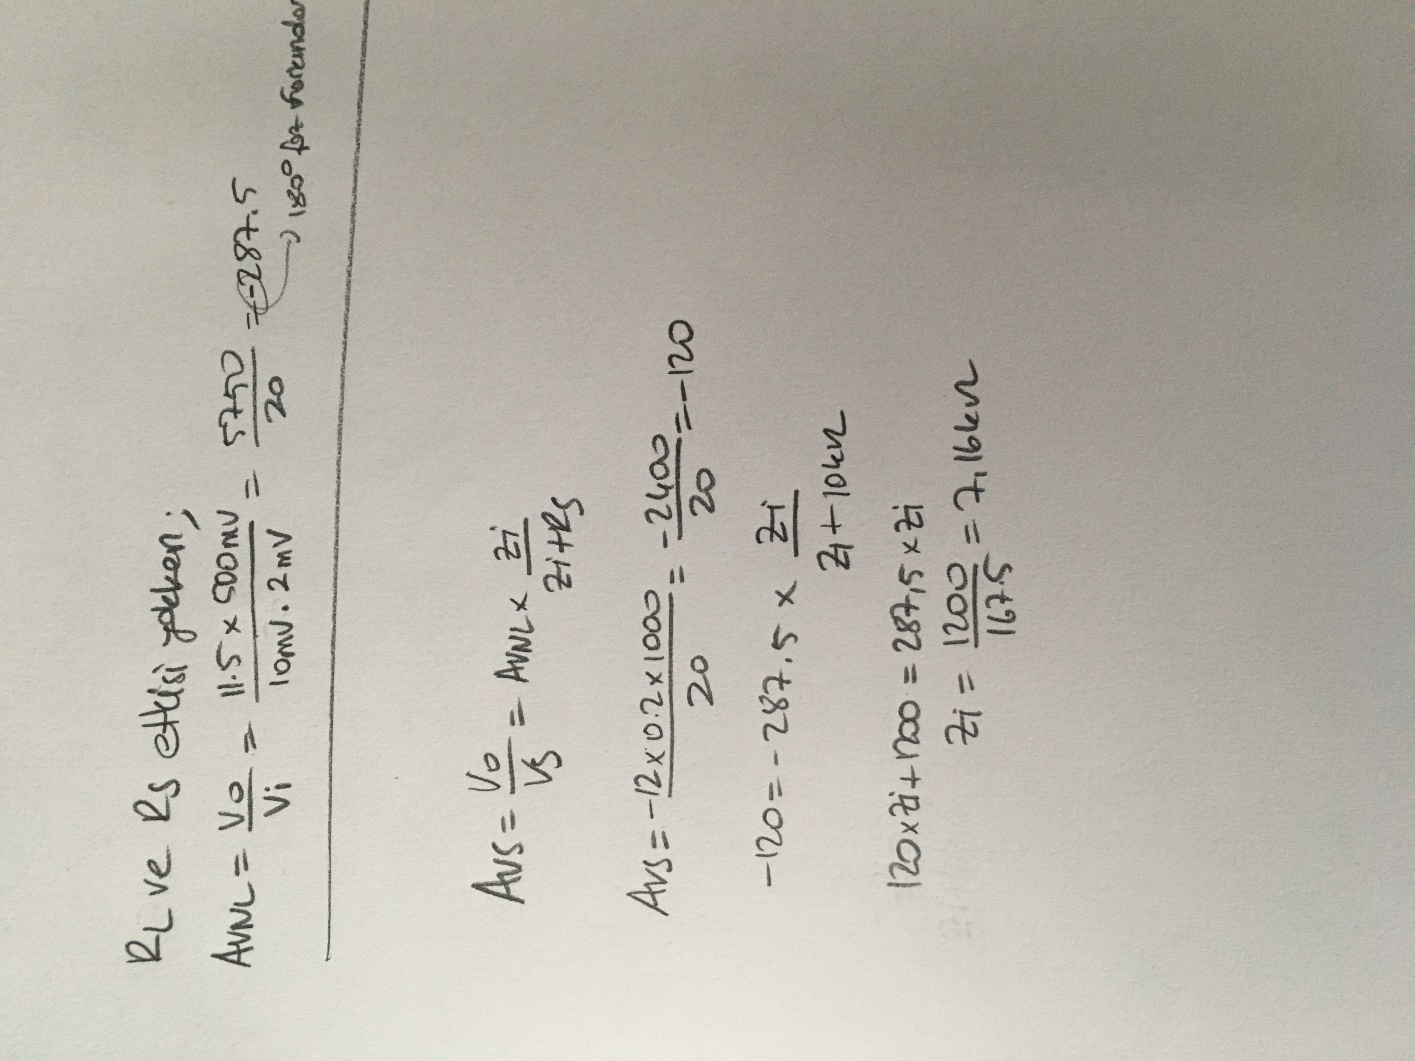 RL ve Rs etkisi yokken;
AVNL = Vo/Vi = 11.5 x 500mV / 10mV . 2mV = 5750/20 = -287.5
→ 180° faz farkından
AVS = Vo/Vs = AVNL x Zi/Zi+Rs
AVS = -12 x 0.2 x 1000 / 20 = -2400/20 = -120
-120 = -287.5 x Zi/Zi+10kΩ
120xZi+1200 = 287,5 x Zi
Zi = 1200/167.5 = 7,16kΩ